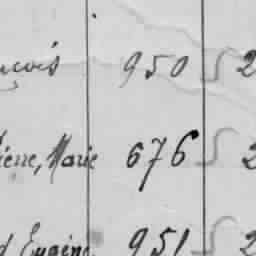 nçois 950 2
ierre, Marie 676 2
d Eugène 951 2